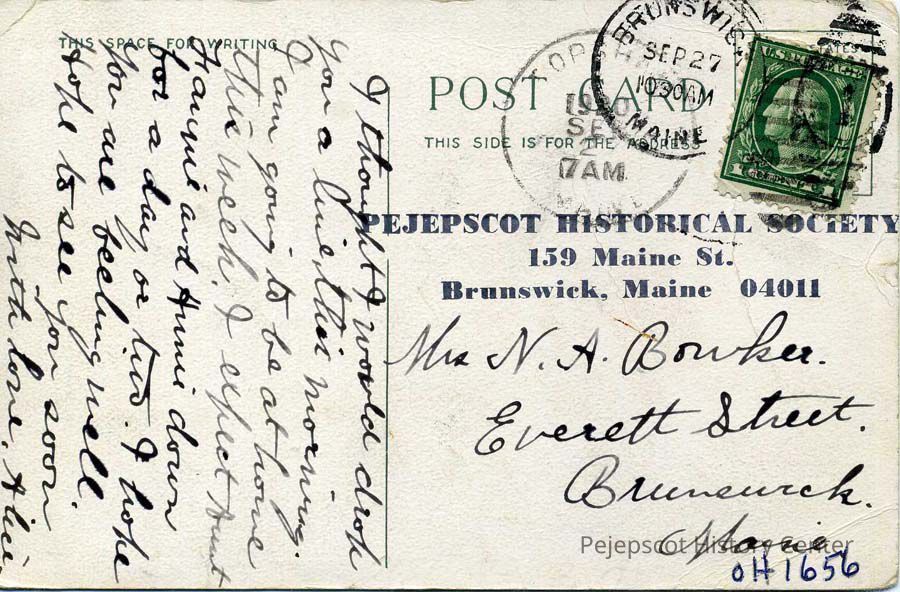 THIS SPACE FOR WRITING
I thought I would drop
you a line, this morning.
I am going to be at home
this week. I expect Aunt
Fannie and Annie down
for a day or two. I hope
you are feeling well.
Hope to see you soon
With love, Alice
POST CARD
THIS SIDE IS FOR THE ADDRESS
TOPSHAM
SEP
7AM
MAINE
BRUNSWICK
SEP 27
1030AM
MAINE
PEJEPSCOT HISTORICAL SOCIETY
159 Maine St.
Brunswick, Maine 04011
Mrs N. A. Bowker.
Everett Street.
Brunswick.
Maine
Pejepscot History Center
OH 1656